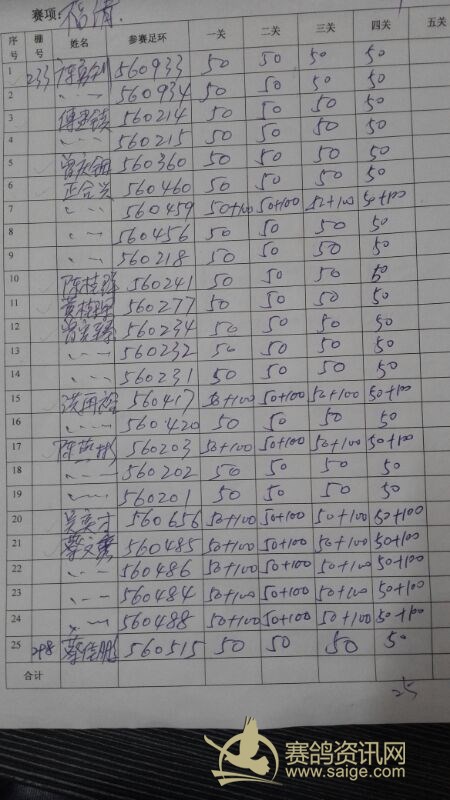 赛项: 福清
序号 棚号 姓名 参赛足环 一关 二关 三关 四关 五关
1 233 560933 50 50 50 50
2 〃 560934 50 50 50 50
3 560214 50 50 50 50
4 〃 560215 50 50 50 50
5 560360 50 50 50 50
6 正合兴 560460 50 50 50 50
7 〃 560459 50+100 50+100 50+100 50+100
8 〃 560456 50 50 50 50
9 〃 560218 50 50 50 50
10 560241 50 50 50 50
11 560277 50 50 50 50
12 560234 50 50 50 50
13 〃 560232 50 50 50 50
14 〃 560231 50 50 50 50
15 560417 50+100 50+100 50+100 50+100
16 〃 560420 50 50 50 50
17 560203 50+100 50+100 50+100 50+100
18 〃 560202 50 50 50 50
19 〃 560201 50 50 50 50
20 吴英才 560656 50+100 50+100 50+100 50+100
21 560485 50+100 50+100 50+100 50+100
22 〃 560486 50+100 50+100 50+100 50+100
23 〃 560484 50+100 50+100 50+100 50+100
24 〃 560488 50+100 50+100 50+100 50+100
25 298 蔡佳鹏 560515 50 50 50 50
合计
25
赛鸽资讯网
www.saige.com